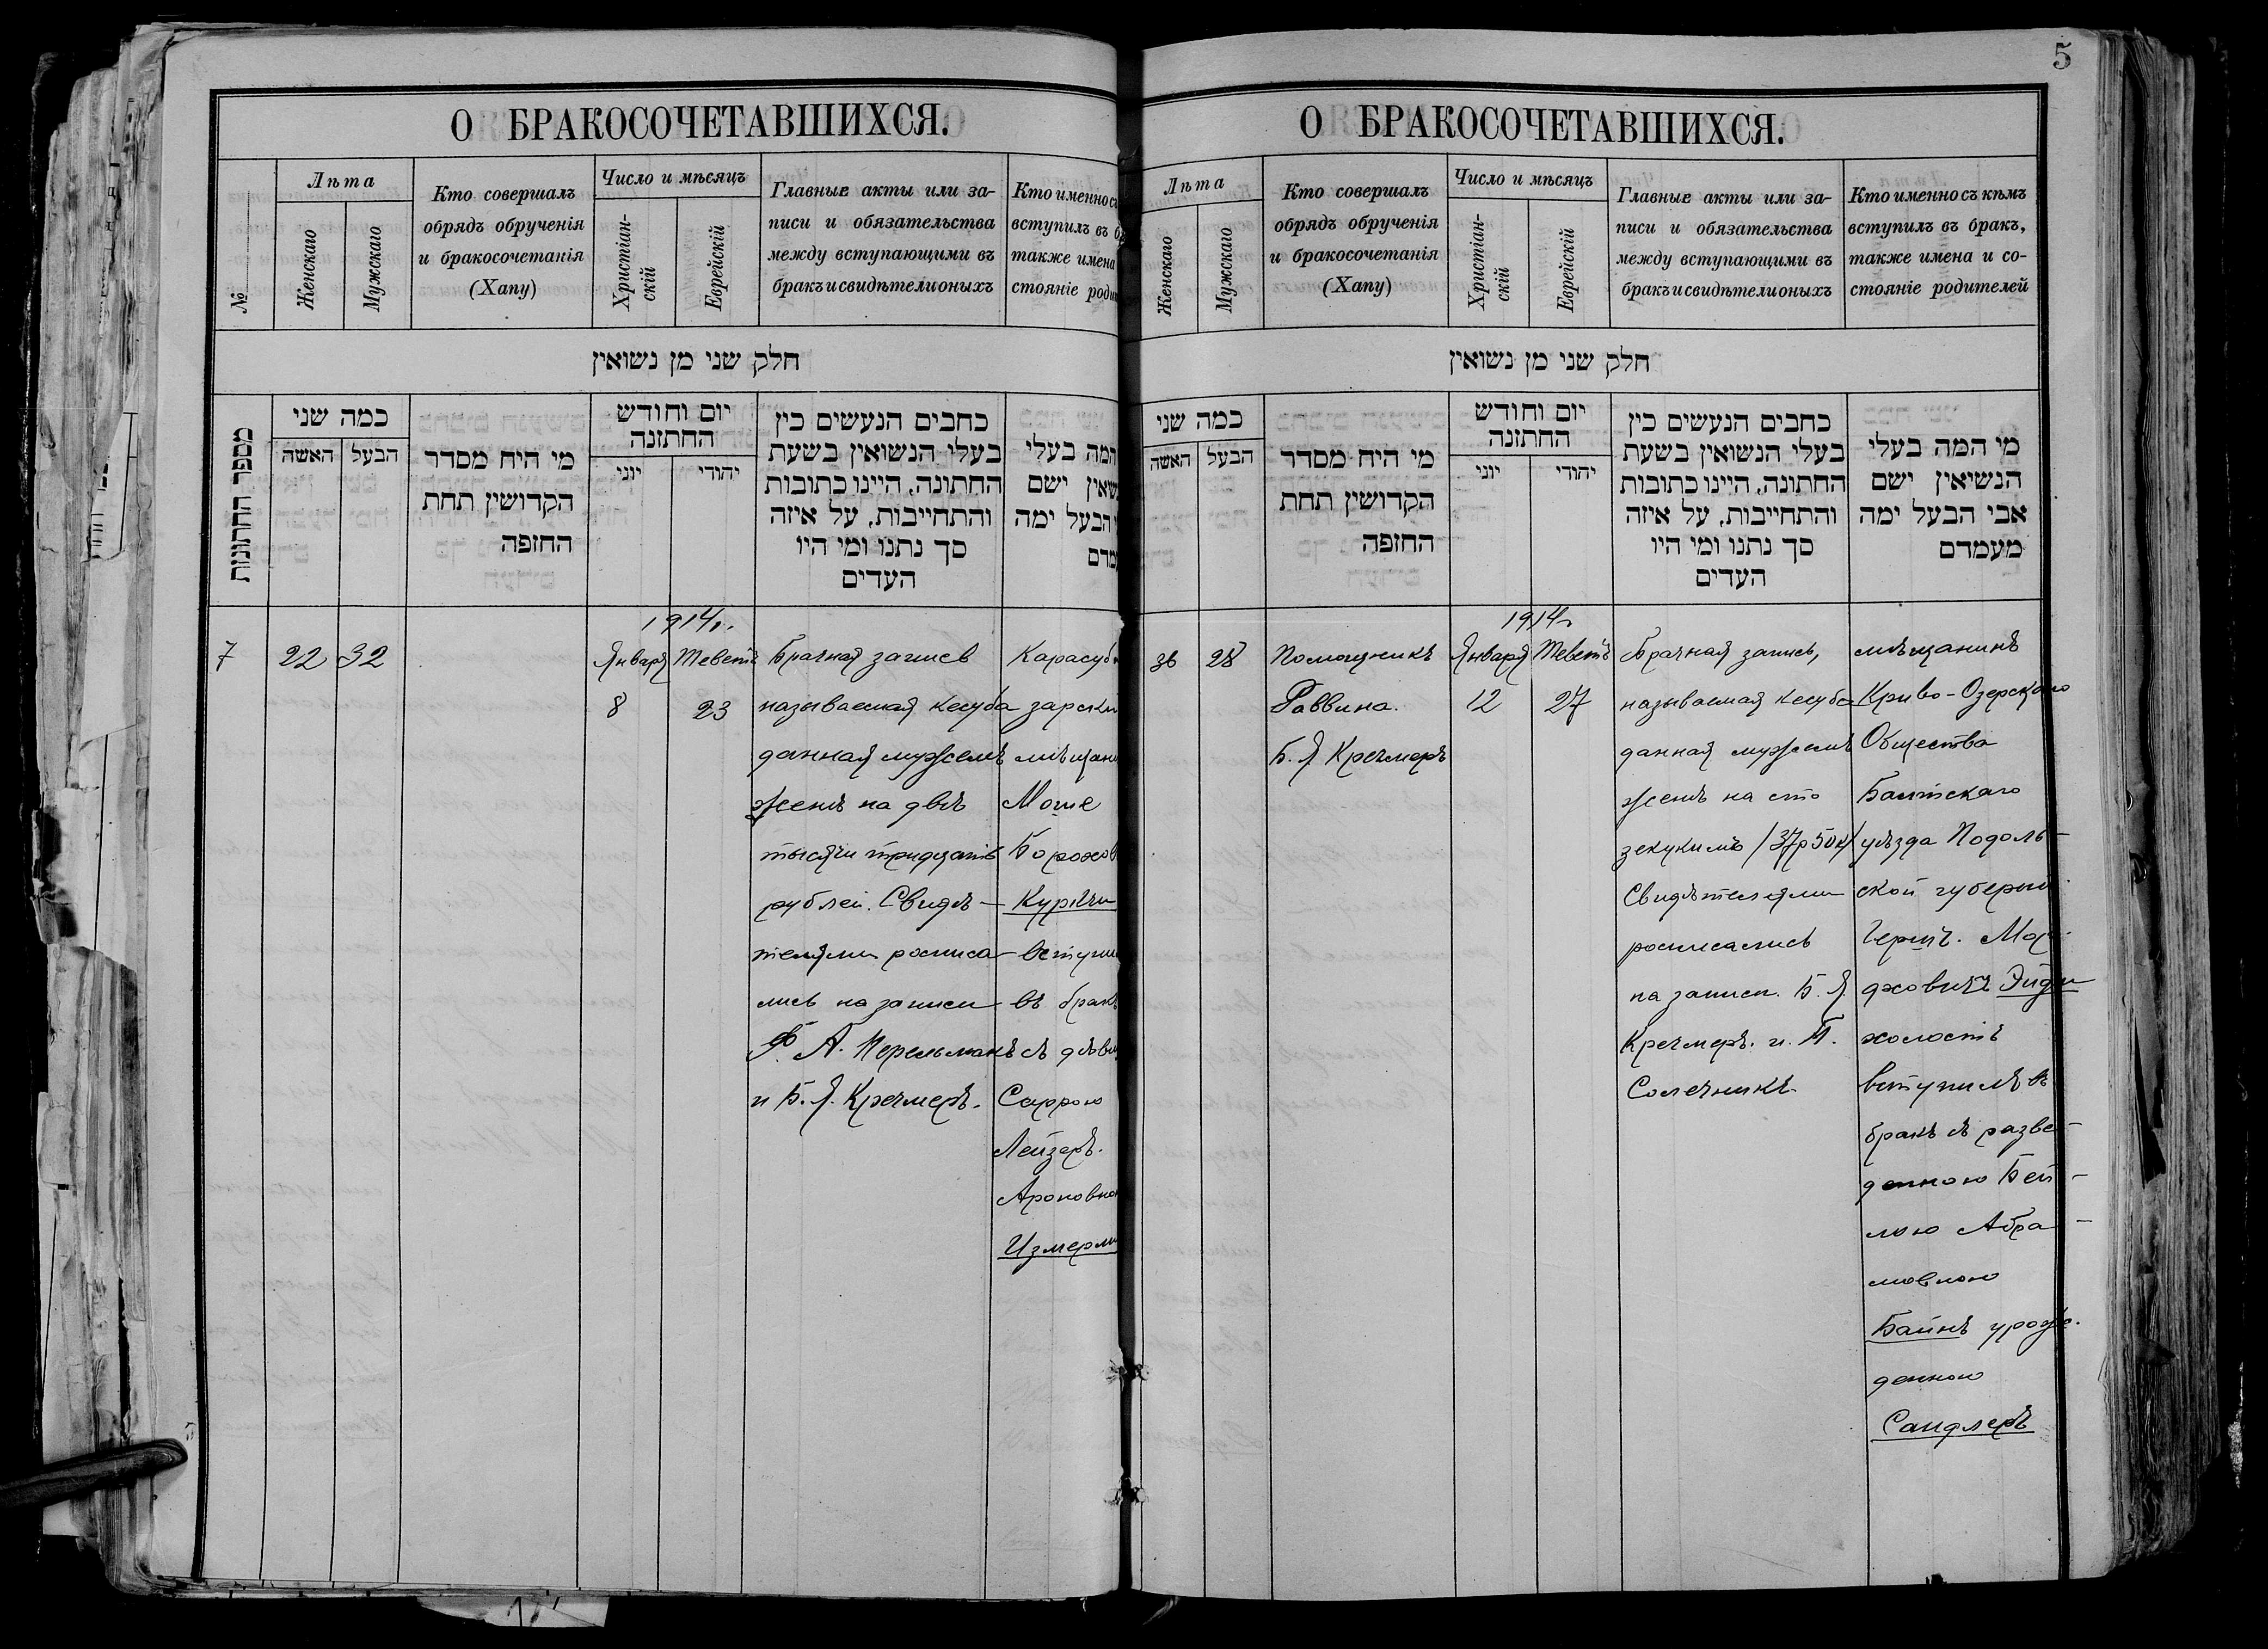 О БРАКОСОЧЕТАВШИХСЯ.
№
Лѣта
Женскаго
Мужскаго
Кто совершалъ
обрядъ обрученія
и бракосочетанія
(Хапу)
Число и мѣсяцъ
Христіан-
скій
Еврейскій
Главные акты или за-
писи и обязательства
между вступающими въ
бракъ и свидѣтели оныхъ
Кто именно съ
вступилъ въ
также имена
стояніе
חלק שני מן נשואין
מספר החתונות
כמה שני
האשה
הבעל
מי היח מסדר
הקדושין תחת
החזפה
יום וחודש
החתזנה
יוני
יהודי
כחבים הנעשים כין
בעלי הנשואין בשעת
החתונה, היינו כתובות
והתחייבות, על איזה
סך נתנו ומי היו
העדים
המה בעלי
ישם
הבעל ימה
1914г.
7
22
32
Января
8
Теветъ
23
Брачная запись
называемая кесуба
данная мужемъ
женѣ на двѣ
тысячи тридцать
рублей. Свидѣ-
телями росписа-
лись на записи
А. Перельманъ
и Б. Я. Кречмеръ.
Карасуб
зарски
мѣщани
Моше
Борохов
Куркчи
вступи
въ бракъ
съ дѣви
Саррою
Лейзеръ-
Ароновно
Измерли
5
О БРАКОСОЧЕТАВШИХСЯ.
Лѣта
Женскаго
Мужскаго
Кто совершалъ
обрядъ обрученія
и бракосочетанія
(Хапу)
Число и мѣсяцъ
Христіан-
скій
Еврейскій
Главные акты или за-
писи и обязательства
между вступающими въ
бракъ и свидѣтели оныхъ
Кто именно съ кѣмъ
вступилъ въ бракъ,
также имена и со-
стояніе родителей
חלק שני מן נשואין
כמה שני
האשה
הבעל
מי היח מסדר
הקדושין תחת
החזפה
יום וחודש
החתזנה
יוני
יהודי
כחבים הנעשים כין
בעלי הנשואין בשעת
החתונה, היינו כתובות
והתחייבות, על איזה
סך נתנו ומי היו
העדים
מי המה בעלי
הנשיאין ישם
אבי הבעל ימה
מעמדם
1914г.
36
28
Помощникъ
Раввина.
Б. Я Кречмеръ
Января
12
Теветъ
27
Брачная запись,
называемая кесуба
данная мужемъ
женѣ на сто
зекукимъ /37р 50к/
Свидѣтелями
росписались
на записи. Б. Я.
Кречмеръ. и.
Солечникъ.
мѣщанинъ
Криво-Озерскаго
Общества
Балтскаго
уѣзда Подоль-
ской губерніи
Гершъ. Мор-
дховичъ
холостъ
вступилъ въ
бракъ съ разве-
денною Бей-
лою Абра-
мовною
Байнъ урож-
денною
Сандлеръ